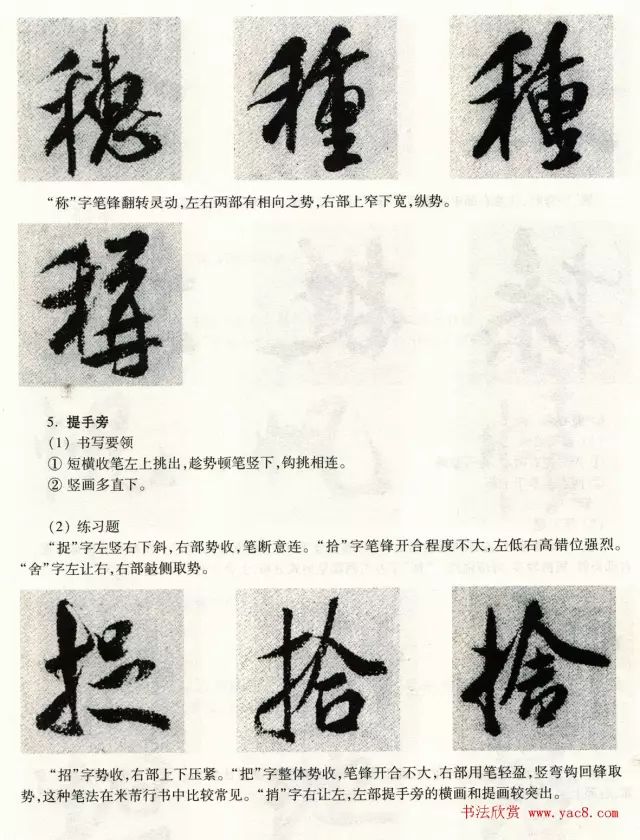 穗 種 種
“称”字笔锋翻转灵动,左右两部有相向之势,右部上窄下宽,纵势。
稱
5. 提手旁
(1) 书写要领
① 短横收笔左上挑出,趁势顿笔竖下,钩挑相连。
② 竖画多直下。
(2) 练习题
“捉”字左竖右下斜,右部势收,笔断意连。“拾”字笔锋开合程度不大,左低右高错位强烈。
“舍”字左让右,右部欹侧取势。
捉 拾 捨
“招”字势收,右部上下压紧。“把”字整体势收,笔锋开合不大,右部用笔轻盈,竖弯钩回锋取
势,这种笔法在米芾行书中比较常见。“捎”字右让左,左部提手旁的横画和提画较突出。
书法欣赏 www.yac8.com